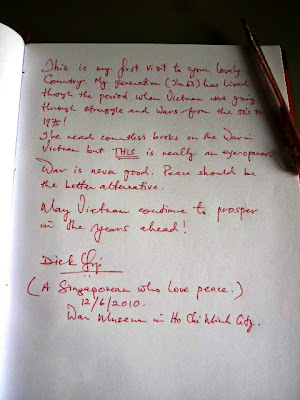 This is my first visit to your lovely
Country. My generation (I'm 63) has lived
through the period when Vietnam was going
through struggle and wars - from the 50's to
1975!
I've read countless books on the War in
Vietnam but THIS is really an eye-opener.
War is never good. Peace should be
the better alternative.
May Vietnam continue to prosper
in the years ahead!
Dick
(A Singaporean who love peace.)
12/6/2010.
War Museum in Ho Chi Minh City.